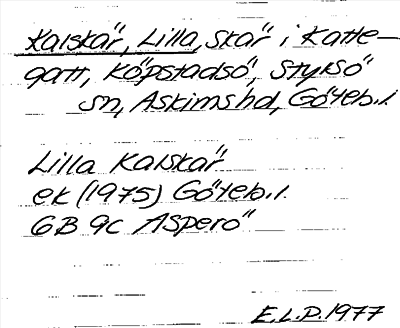 Kalskär, Lilla, Skär i Katte-
gatt, Köpstadsö, Styrsö
sn, Askims hd, Göteb.l.
Lilla Kalskär
ek (1975) Göteb.l.
6B 9c Asperö
E.L.D. 1977